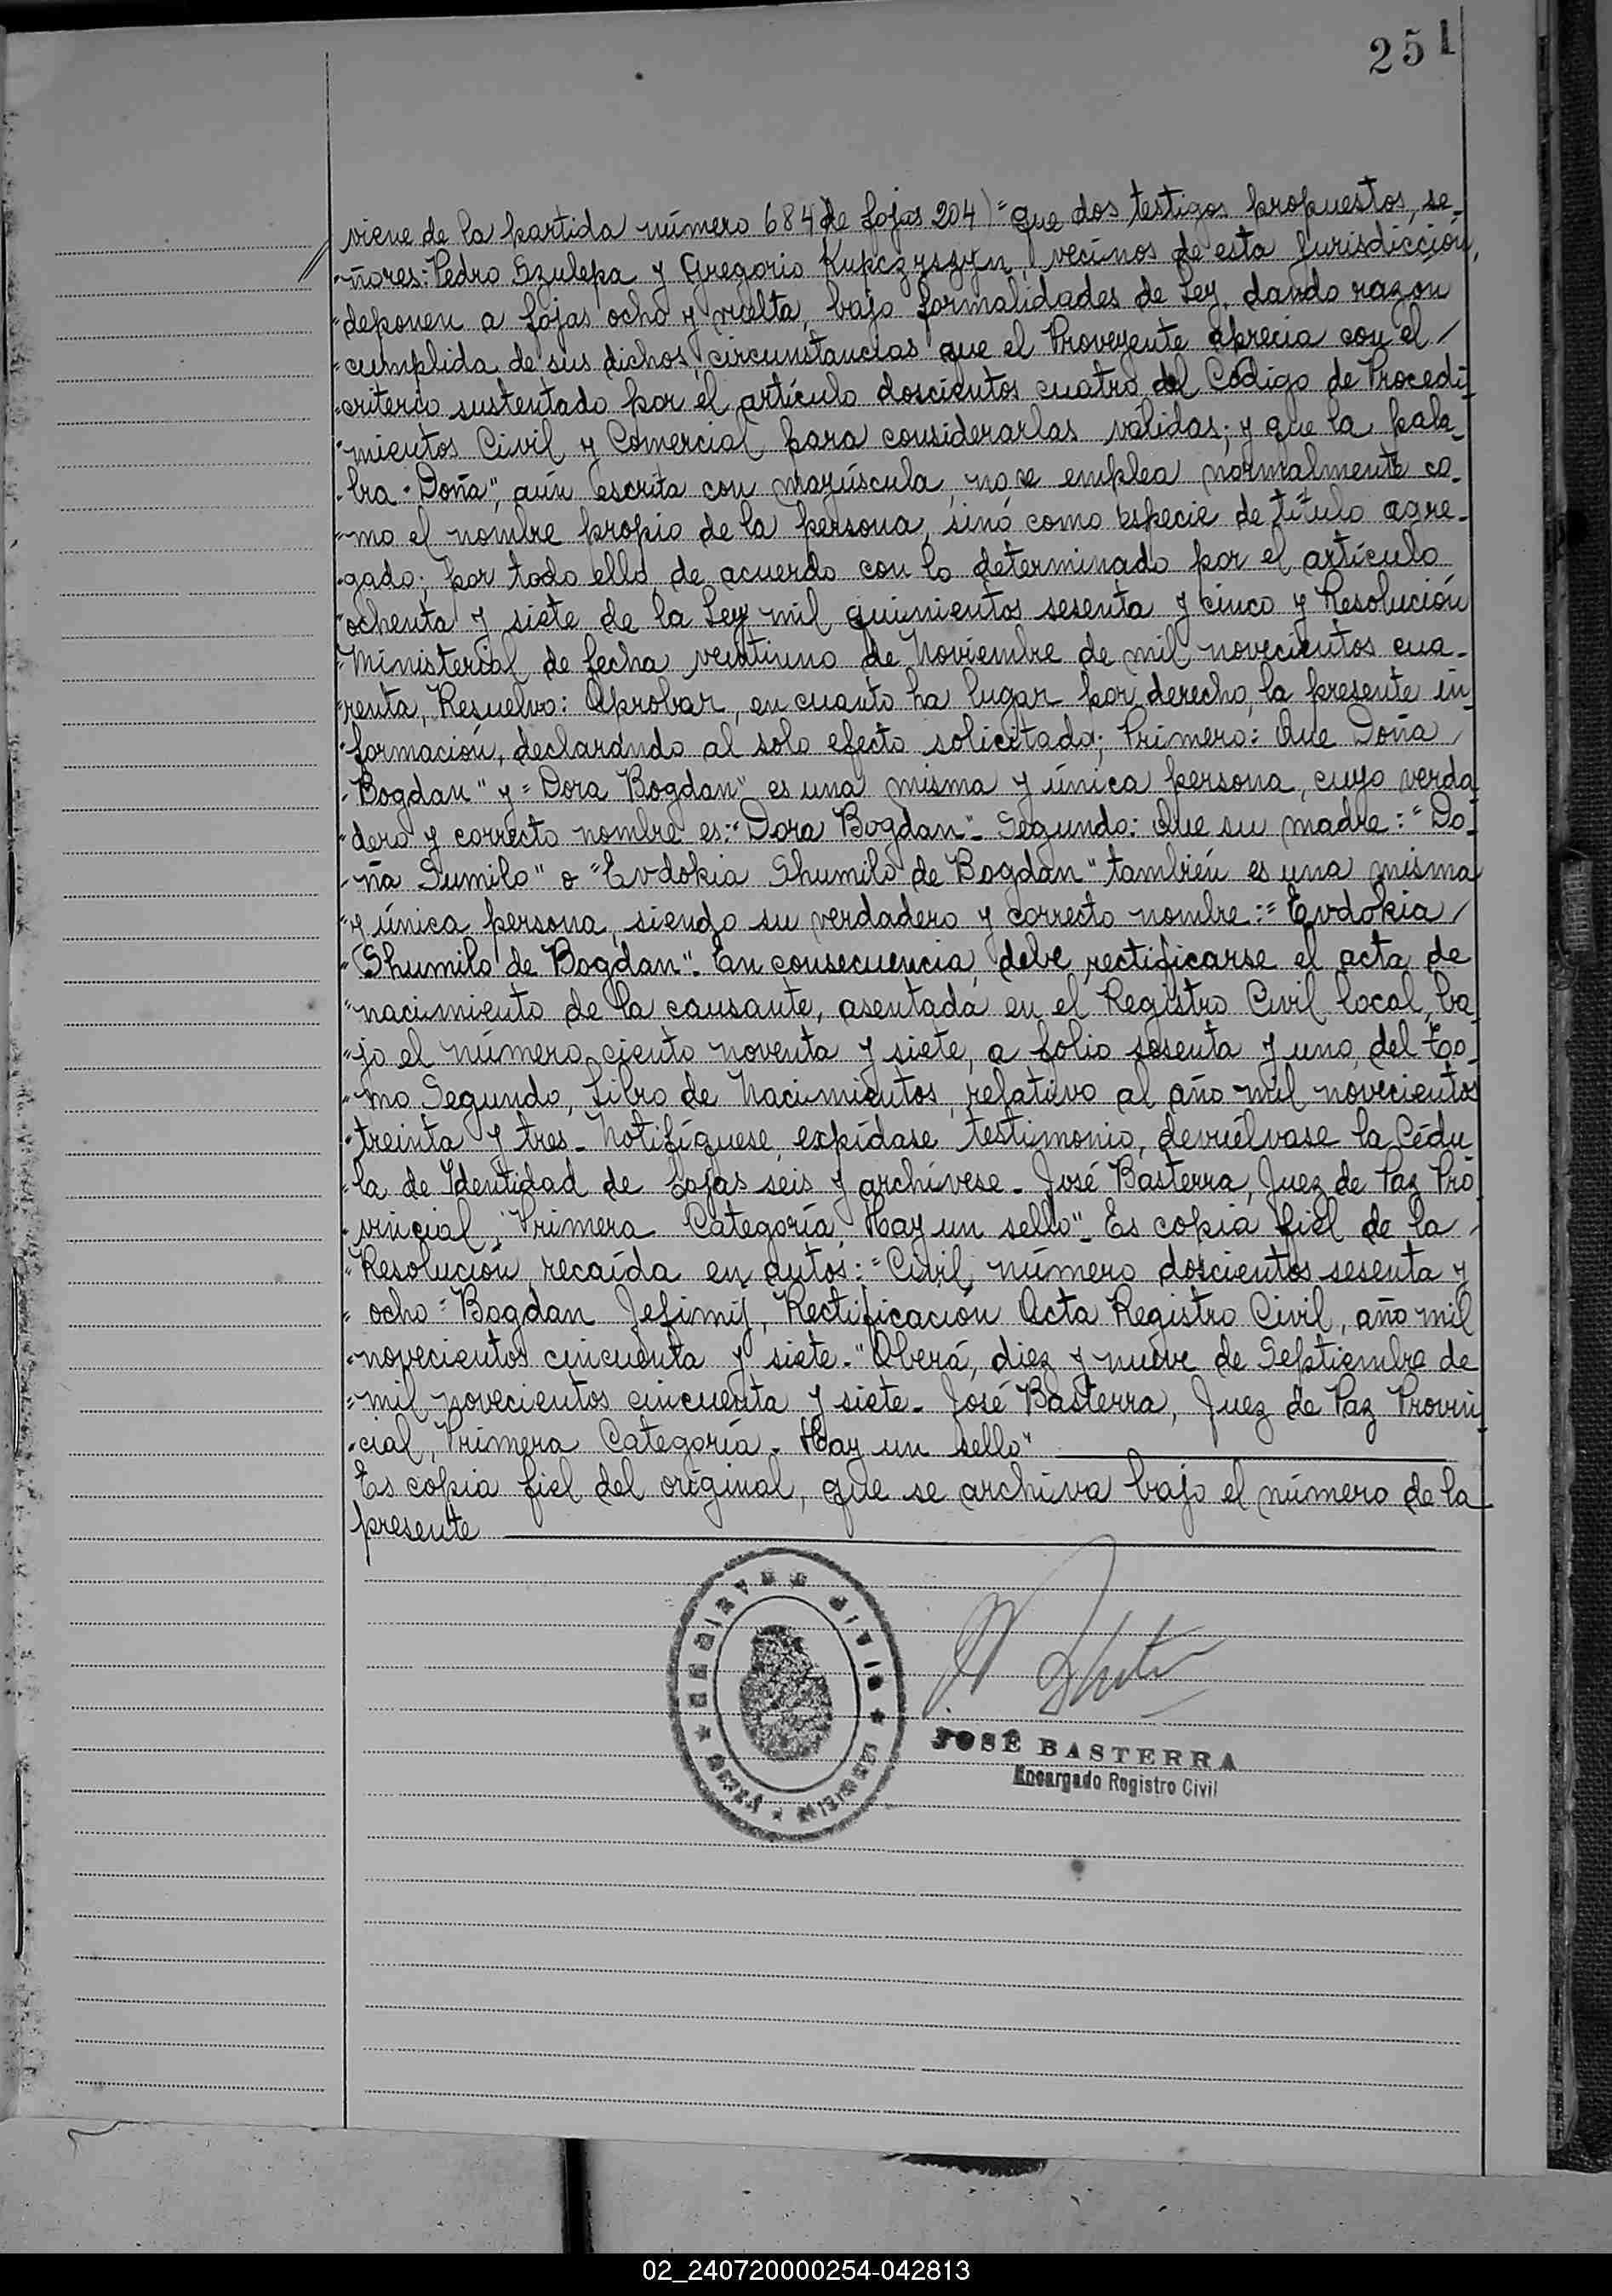 251
viene de la partida número 684 de fojas 204) = que dos testigos propuestos, se-
-ñores: Pedro Szulepa y Gregorio Kupczyszyn, vecinos de esta Jurisdicción,
"deponen a fojas ocho y vuelta, bajo formalidades de Ley, dando razón
"cumplida de sus dichos, circunstancias que el Proveyente aprecia con el /
"criterio sustentado por el artículo doscientos cuatro del Código de Procedi-
"mientos Civil y Comercial para considerarlas válidas; y que la pala-
-bra "Doña", aún escrita con mayúscula, no se emplea normalmente co-
"mo el nombre propio de la persona, sinó como especie de título agre-
"gado; por todo ello, de acuerdo con lo determinado por el artículo
"ochenta y siete de la Ley mil quinientos sesenta y cinco y Resolución
"Ministerial de fecha veintiuno de Noviembre de mil novecientos cua-
"renta, Resuelvo: Aprobar, en cuanto ha lugar por derecho, la presente in-
"formación, declarando al solo efecto solicitado; Primero: Que Doña /
"Bogdan" y "Dora Bogdan" es una misma y única persona, cuyo verda
"dero y correcto nombre es: "Dora Bogdan". Segundo: Que su madre: "Do-
-ña Sumilo" o "Evdokia Shumilo de Bogdan" también es una misma
"y única persona, siendo su verdadero y correcto nombre: "Evdokia /
"Shumilo de Bogdan". En consecuencia, debe rectificarse el acta de
"nacimiento de la causante, asentada en el Registro Civil local, ba-
"jo el número ciento noventa y siete, a folio sesenta y uno, del To-
"mo Segundo, Libro de Nacimientos, relativo al año mil novecientos
"treinta y tres. Notifíquese, expídase testimonio, devuélvase la Cédu
"la de Identidad de fojas seis y archívese. José Basterra, Juez de Paz Pro
"vincial, Primera Categoría. Hay un sello". Es copia fiel de la /
"Resolución, recaída en autos: "Civil, número doscientos sesenta y
" ocho = Bogdan Jefimij, Rectificación Acta Registro Civil, año mil
"novecientos cincuenta y siete". Oberá, diez y nueve de Septiembre de
"mil novecientos cincuenta y siete. José Basterra, Juez de Paz Provin
"cial, Primera Categoría. Hay un sello"
Es copia fiel del original, que se archiva bajo el número de la
presente
REGISTRO CIVIL
OBERÁ ★ MISIONES
JOSÉ BASTERRA
Encargado Registro Civil
02_240720000254-042813